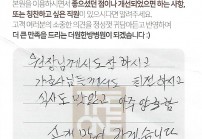 본원을 이용하시면서 좋으셨던 점이나 개선되었으면 하는 사항,
또는 칭찬하고 싶은 직원이 있으시다면 알려주세요.
고객 여러분의 소중한 의견을 정성껏 귀담아듣고 반영하여
더 큰 만족을 드리는 더원한방병원이 되겠습니다:)
원장님께서도 잘 하시고
간호사님들께서도 친절하시고
식사도 맛있고 아주 만족함
소개 많이 하겠습니다